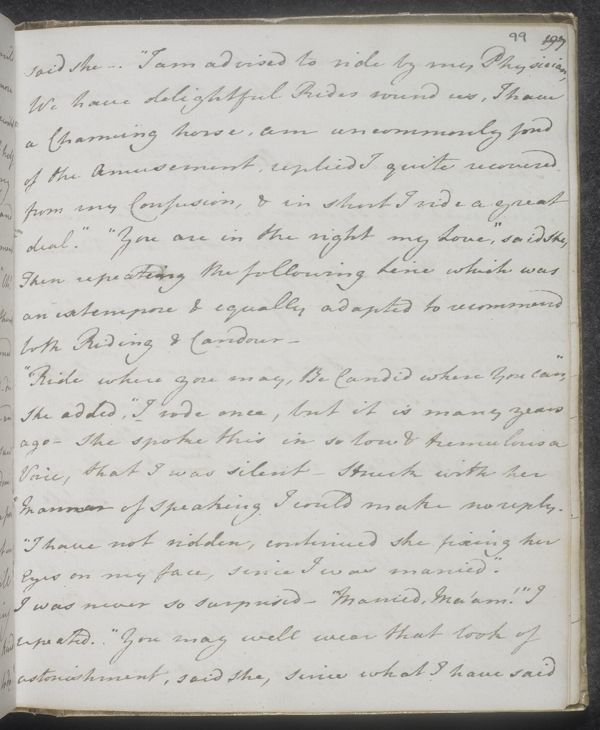 99 197
said she—. "I am advised to ride by my Physician,
We have delightful Rides round us, I have
a Charming horse, am uncommonly fond
of the Amusement, replied I quite recovered
from my Confusion, & in short I ride a great
deal." "You are in the right my Love," said she,
Then repeating the following line which was
an extempore & equally adapted to recommend
both Riding & Candour—
"Ride where you may, Be Candid where You can,"
She added, "I rode once, but it is many years
ago— She spoke this in so low & tremulous a
Voice, that I was silent— Struck with her
Manner of speaking I could make no reply.
"I have not ridden, continued she fixing her
Eyes on my face, since I was married."
I was never so surprised— "Married, Ma'am!" I
repeated. "You may well wear that look of
astonishment, said she, since what I have said